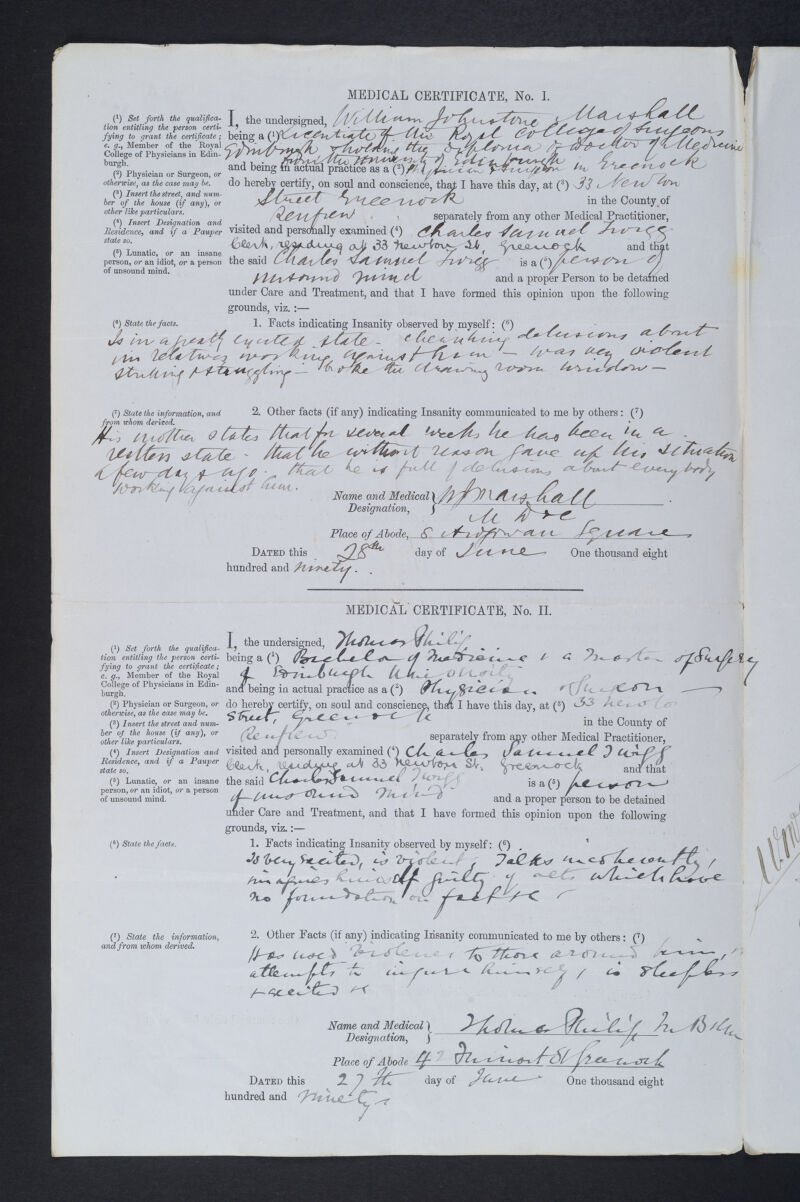 MEDICAL CERTIFICATE, No. I.
(¹) Set forth the qualifica-
tion entitling the person certi-
fying to grant the certificate;
e. g., Member of the Royal
College of Physicians in Edin-
burgh.
(²) Physician or Surgeon, or
otherwise, as the case may be.
(³) Insert the street, and num-
ber of the house (if any), or
other like particulars.
(⁴) Insert Designation and
Residence, and if a Pauper
state so.
(⁵) Lunatic, or an insane
person, or an idiot, or a person
of unsound mind.
I, the undersigned, William Johnstone Marshall
being a (¹) Licentiate of the Royal College of Surgeons
Edinburgh & holding the diploma of Doctor of Medicine
from the University of Edinburgh
and being in actual practice as a (²) Physician & Surgeon in Greenock
do hereby certify, on soul and conscience, that I have this day, at (³) 33 Newton
Street Greenock in the County of
Renfrew separately from any other Medical Practitioner,
visited and personally examined (⁴) Charles Samuel Twigg
Clerk, residing at 33 Newton St. Greenock and that
the said Charles Samuel Twigg is a (⁵) person of
unsound mind and a proper Person to be detained
under Care and Treatment, and that I have formed this opinion upon the following
grounds, viz. :—
(⁶) State the facts.
1. Facts indicating Insanity observed by myself: (⁶)
Is in a greatly excited state - cherishing delusions about
his relatives working against him - was very violent
striking & struggling - broke the drawing room window -
(⁷) State the information, and
from whom derived.
2. Other facts (if any) indicating Insanity communicated to me by others: (⁷)
His mother states that for several weeks he has been in a
restless state - that he without reason gave up his situation
a few days ago - that he is full of delusions about everybody
working against him.
Name and Medical Designation, W J Marshall
M D &c
Place of Abode, 8 Ardgowan Square
DATED this 28th day of June One thousand eight
hundred and ninety.
MEDICAL CERTIFICATE, No. II.
(¹) Set forth the qualifica-
tion entitling the person certi-
fying to grant the certificate;
e. g., Member of the Royal
College of Physicians in Edin-
burgh.
(²) Physician or Surgeon, or
otherwise, as the case may be.
(³) Insert the street and num-
ber of the house (if any), or
other like particulars.
(⁴) Insert Designation and
Residence, and if a Pauper
state so.
(⁵) Lunatic, or an insane
person, or an idiot, or a person
of unsound mind.
I, the undersigned, Thomas Philip
being a (¹) Bachelor of Medicine & a Master of Surgery
of Edinburgh University
and being in actual practice as a (²) Physician & Surgeon
do hereby certify, on soul and conscience, that I have this day, at (³) 33 Newton
Street, Greenock in the County of
Renfrew separately from any other Medical Practitioner,
visited and personally examined (⁴) Charles Samuel Twigg
Clerk, residing at 33 Newton St. Greenock and that
the said Charles Samuel Twigg is a (⁵) person
of unsound mind and a proper person to be detained
under Care and Treatment, and that I have formed this opinion upon the following
grounds, viz. :—
(⁶) State the facts.
1. Facts indicating Insanity observed by myself: (⁶)
Is very excited, is violent, Talks incoherently,
imagines himself guilty of acts which have
no foundation on fact &c
(⁷) State the information,
and from whom derived.
2. Other Facts (if any) indicating Insanity communicated to me by others: (⁷)
Has used violence to those around him,
attempts to injure himself, is sleepless
& excited &c
Name and Medical Designation, Thomas Philip M B &c
Place of Abode 42 Street Greenock
DATED this 27th day of June One thousand eight
hundred and ninety